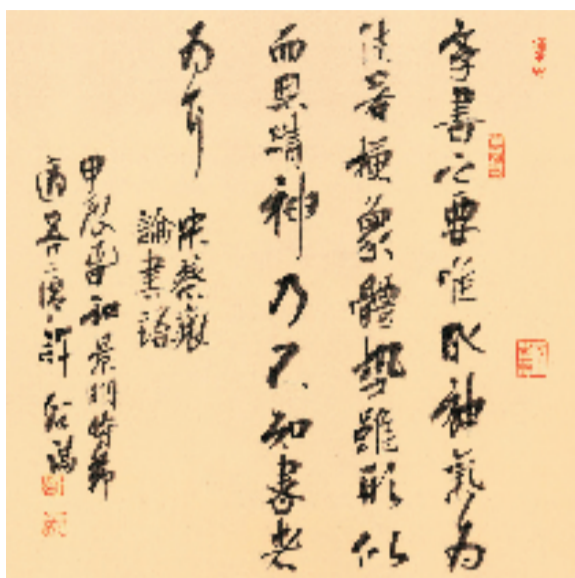 學書之要唯取神氣為
佳若模象體勢雖形似
而無精神乃不知書者
為耳
宋蔡襄
論書語
甲辰春和景明時節